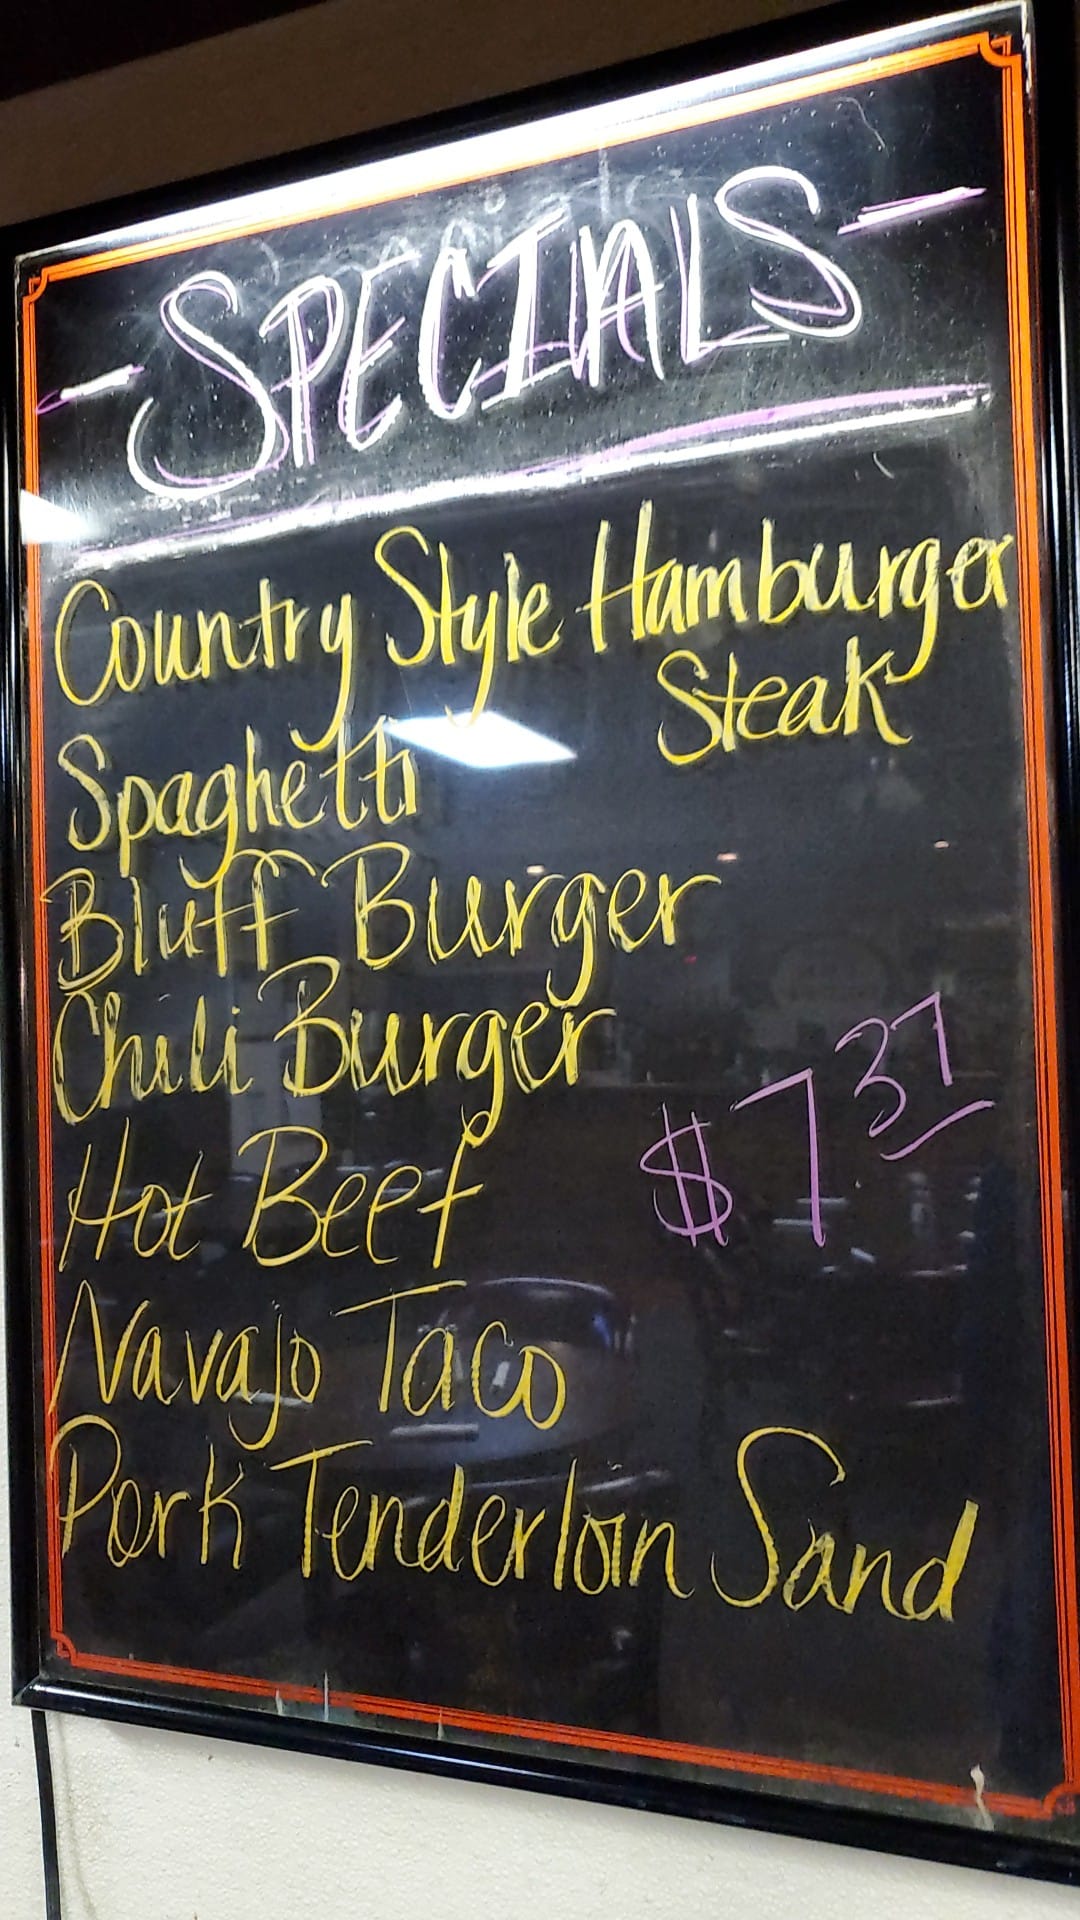 - SPECIALS -
Country Style Hamburger
Steak
Spaghetti
Bluff Burger
Chili Burger
$7 37
Hot Beef
Navajo Taco
Pork Tenderloin Sand